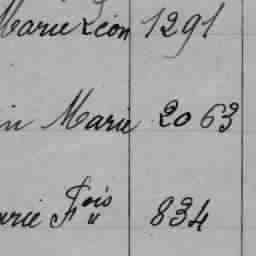 Marie Léon 1291
in Marie 2063
rie Fois 834